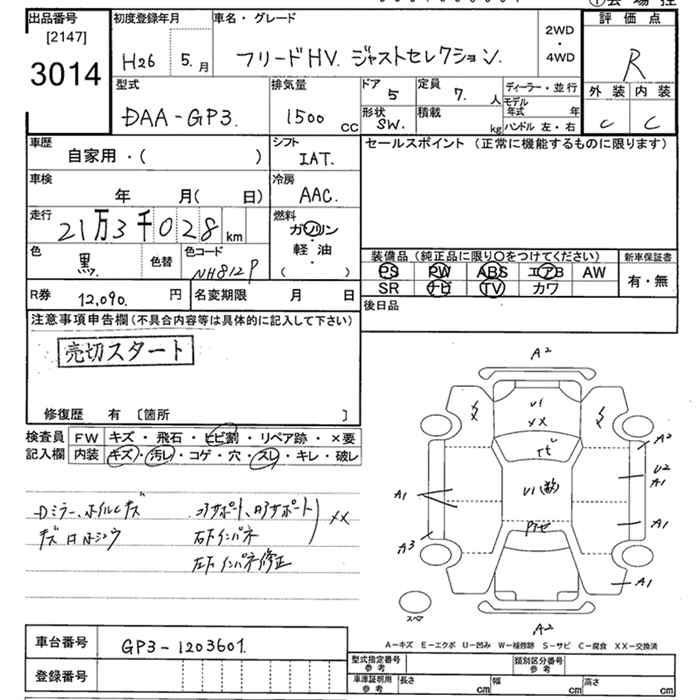 出品番号 初度登録年月 車名・グレード 評価点
[2147]
3014
H26 5.月 フリードHV. ジャストセレクション. 2WD・4WD R
型式 排気量 ドア 定員 ディーラー・並行 外装 内装
DAA-GP3. 1500 CC 5 7. 人 モデル年式 年 C C
形状 積載
SW. kg ハンドル 左・右
車歴 自家用・( ) シフト IAT. セールスポイント (正常に機能するものに限ります)
車検 年 月( 日) 冷房 AAC.
走行 21万3千028 km 燃料 ガソリン・軽油 ( )
色 黒. 色替 色コード NH812P
装備品 (純正品に限り○をつけてください) 新車保証書
PS PW ABS エアB AW 有・無
SR ナビ TV カワ
R券 12,090. 円 名変期限 月 日 後日品
注意事項申告欄(不具合内容等は具体的に記入して下さい)
売切スタート
修復歴 有 〔箇所 〕
検査員記入欄 FW キズ・飛石・ヒビ割・リペア跡・×要
内装 キズ・汚レ・コゲ・穴・スレ・キレ・破レ
Dミラー、ホイルキズ コアサポート、ロアサポート XX
キズ
右下インパネ
左下インパネ修正
A2
U1
XX
A2
U2
A1
U1
A1
A1
A3
A1
スペア
A2
A-キズ E-エクボ U-凹み W-補修跡 S-サビ C-腐食 XX-交換済
車台番号 GP3-1203601.
登録番号
型式指定番号 参考 類別区分番号 参考
車庫証明用 参考 長さ cm 幅 cm 高さ cm